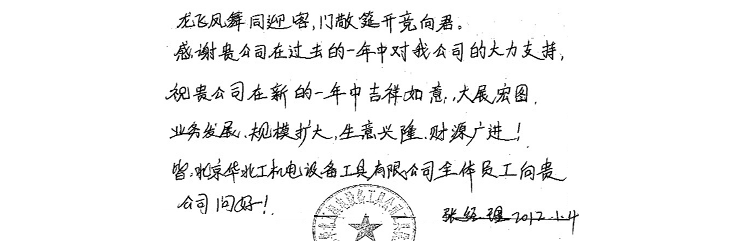 龙飞凤舞同迎客,门敞筵开竞向君。
感谢贵公司在过去的一年中对我公司的大力支持,
祝贵公司在新的一年中吉祥如意,大展宏图,
业务发展、规模扩大,生意兴隆、财源广进!
皆:北京华北工机电设备工具有限公司全体员工向贵
公司问好!
张经理2012.1.4